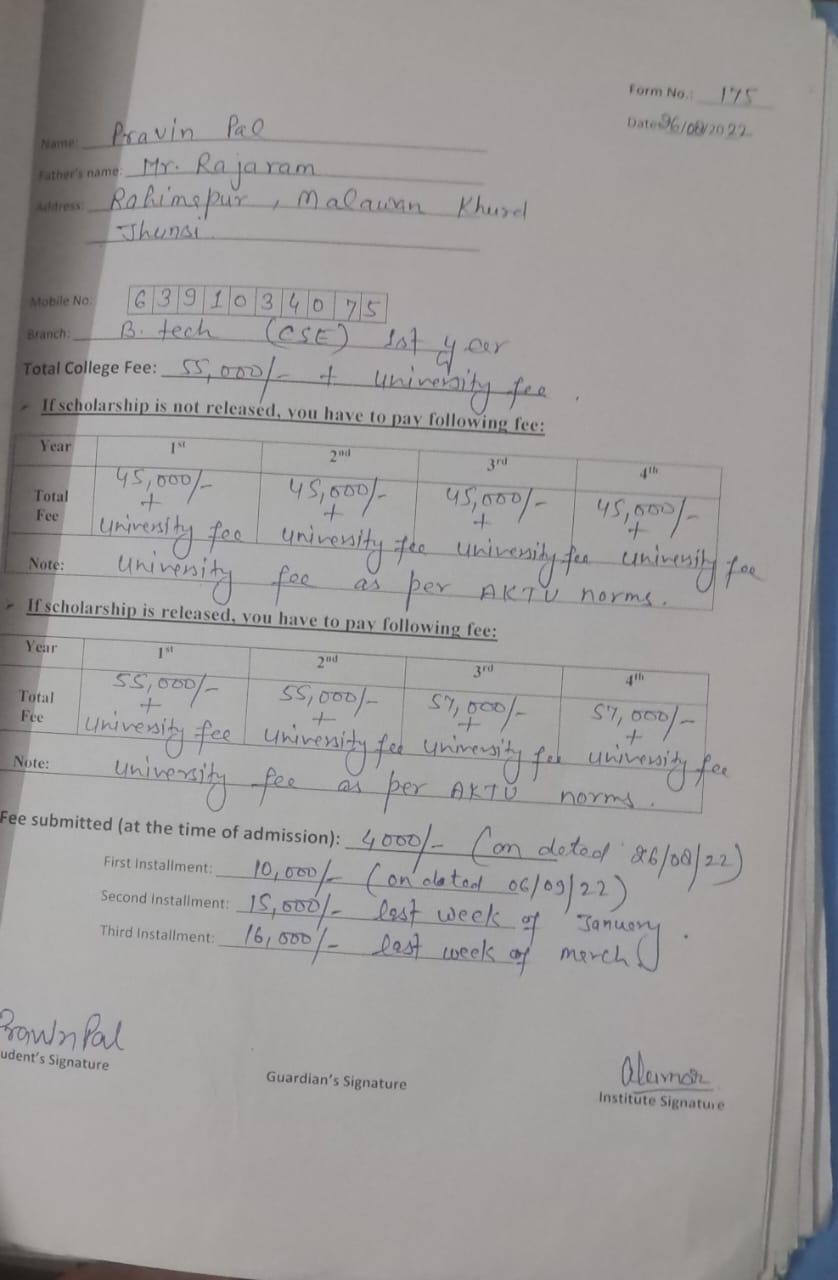 Form No.: 175
Date: 26/08/2022
Name: Pravin Pal
Father's name: Mr. Rajaram
Address: Rahimapur, Malawan Khurd
Jhansi
Mobile No: 6391034075
Branch: B.tech (CSE) 1st year
Total College Fee: 55,000/- + university fee.
➢ If scholarship is not released, you have to pay following fee:
Year 1st 2nd 3rd 4th
Total Fee 45,000/- + university fee 45,000/- + university fee 45,000/- + university fee 45,000/- + university fee
Note: university fee as per AKTU norms.
➢ If scholarship is released, you have to pay following fee:
Year 1st 2nd 3rd 4th
Total Fee 55,000/- + university fee 55,000/- + university fee 57,000/- + university fee 57,000/- + university fee
Note: university fee as per AKTU norms.
Fee submitted (at the time of admission): 4000/- (on dated 26/08/22)
First Installment: 10,000/- (on dated 06/09/22)
Second Installment: 15,000/- last week of January.
Third Installment: 16,000/- last week of march
Pravin Pal
udent's Signature
Guardian's Signature
Institute Signature